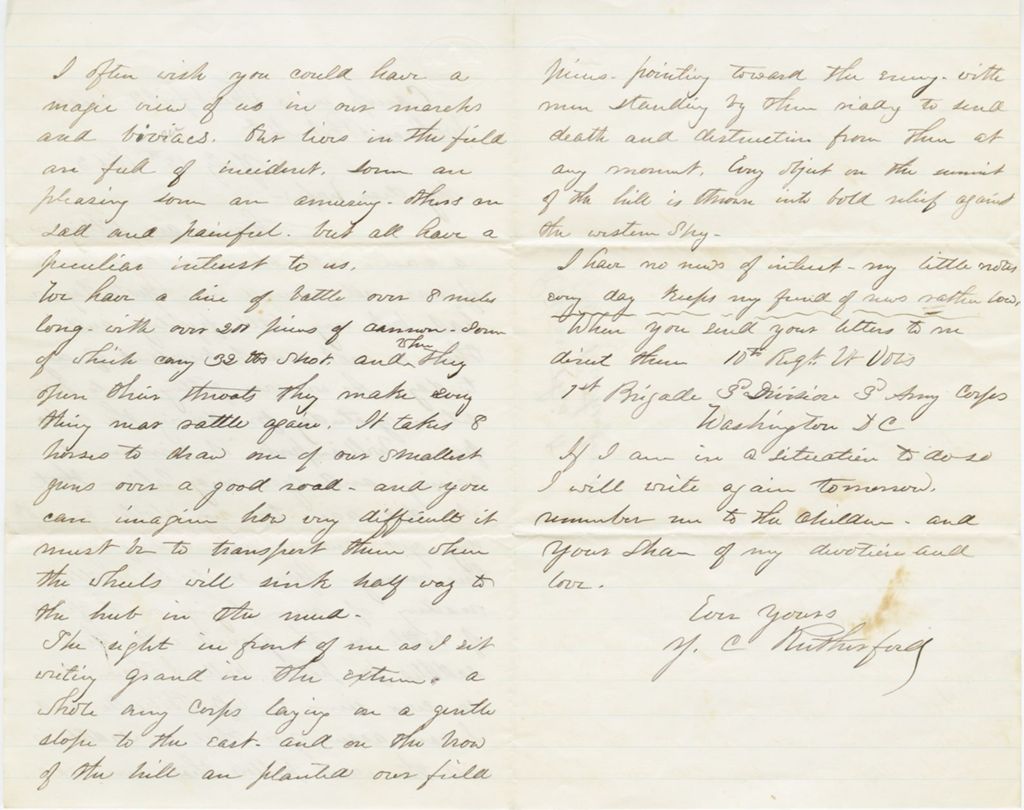 I often wish you could have a
magic view of us in our marchs
and biviacs. Our lives in the field
are full of incident. some are
pleasing some are amusing - others are
sad and painful. but all have a
peculiar interest to us.
We have a line of battle over 8 miles
long - with over 200 pieces of cannon - some
of which carry 32 lbs shot. and when they
open their throats they make every
thing near rattle again. It takes 8
horses to draw one of our smallest
guns over a good road - and you
can imagine how very difficult it
must be to transport them when
the wheels will sink half way to
the hub in the mud -
The sight in front of me as I sit
writing grand in the extreme. a
whole army Corps laying on a gentle
slope to the east - and on the brow
of the hill are planted our field
pieces - pointing toward the enemy - with
men standing by them ready to send
death and destruction from them at
any moment. Every object on the summit
of the hill is thrown into bold relief against
the western sky -
I have no news of interest - my little notes
every day keeps my fund of news rather low.
When you send your letters to me
direct them 10th Regt. Vt Vols
1st Brigade 3d Division 3d Army Corps
Washington D C
If I am in a situation to do so
I will write again tomorrow.
remember me to the children - and
your share of my devotion and
love.
Ever Yours
J. C Rutherford